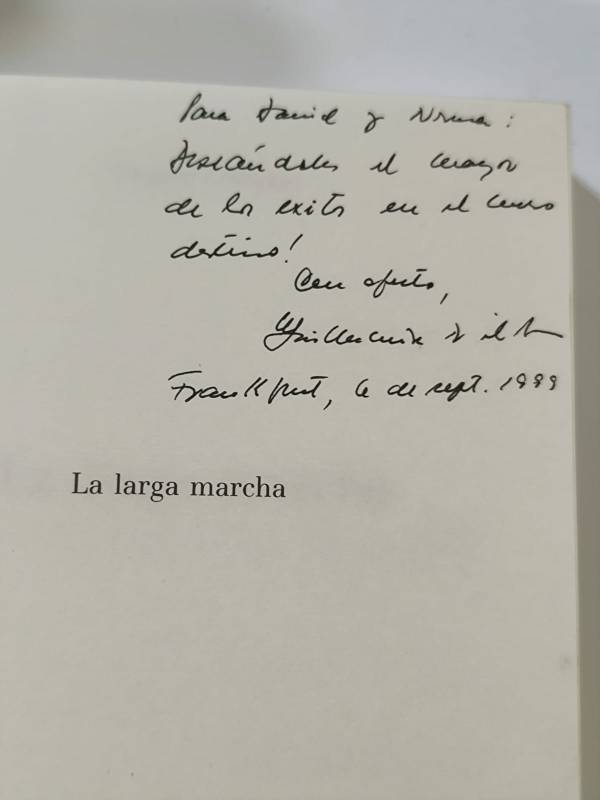 Para David y Norma:
Deseándoles el mayor
de los exitos en el nuevo
destino!
Con afecto,
Guillermina
Frankfurt, 6 de sept. 1999
La larga marcha